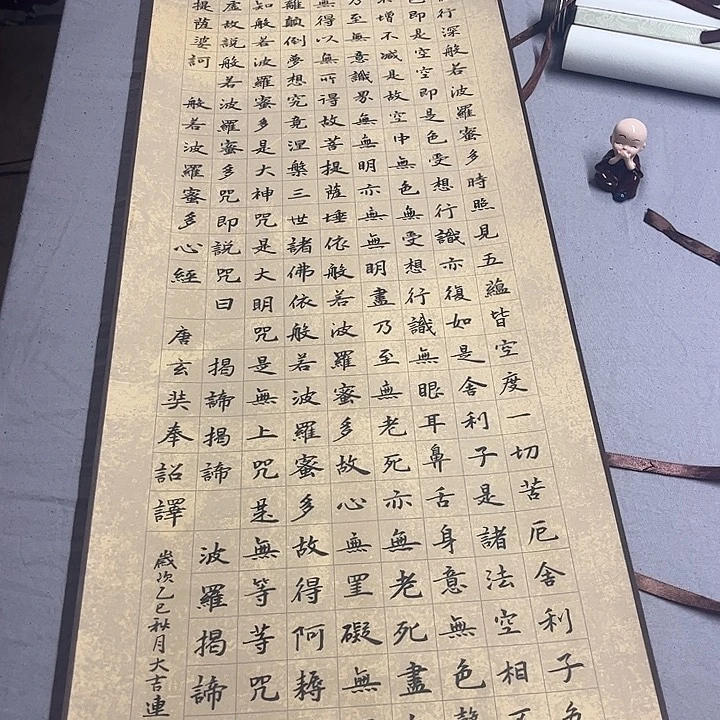 行深般若波羅蜜多時照見五蘊皆空度一切苦厄舍利子色
即是空空即是色受想行識亦復如是舍利子是諸法空相不
增不减是故空中無色無受想行識無眼耳鼻舌身意無色聲
乃至無意識界無無明亦無無明盡乃至無老死亦無老死盡
無得以無所得故菩提薩埵依般若波羅蜜多故心無罣礙無
離顛倒夢想究竟涅槃三世諸佛依般若波羅蜜多故得阿耨
知般若波羅蜜多是大神咒是大明咒是無上咒是無等等咒
虛故說般若波羅蜜多咒即說咒曰 揭諦揭諦 波羅揭諦
提薩婆訶 般若波羅蜜多心經 唐玄奘奉詔譯
歲次乙巳秋月大吉連